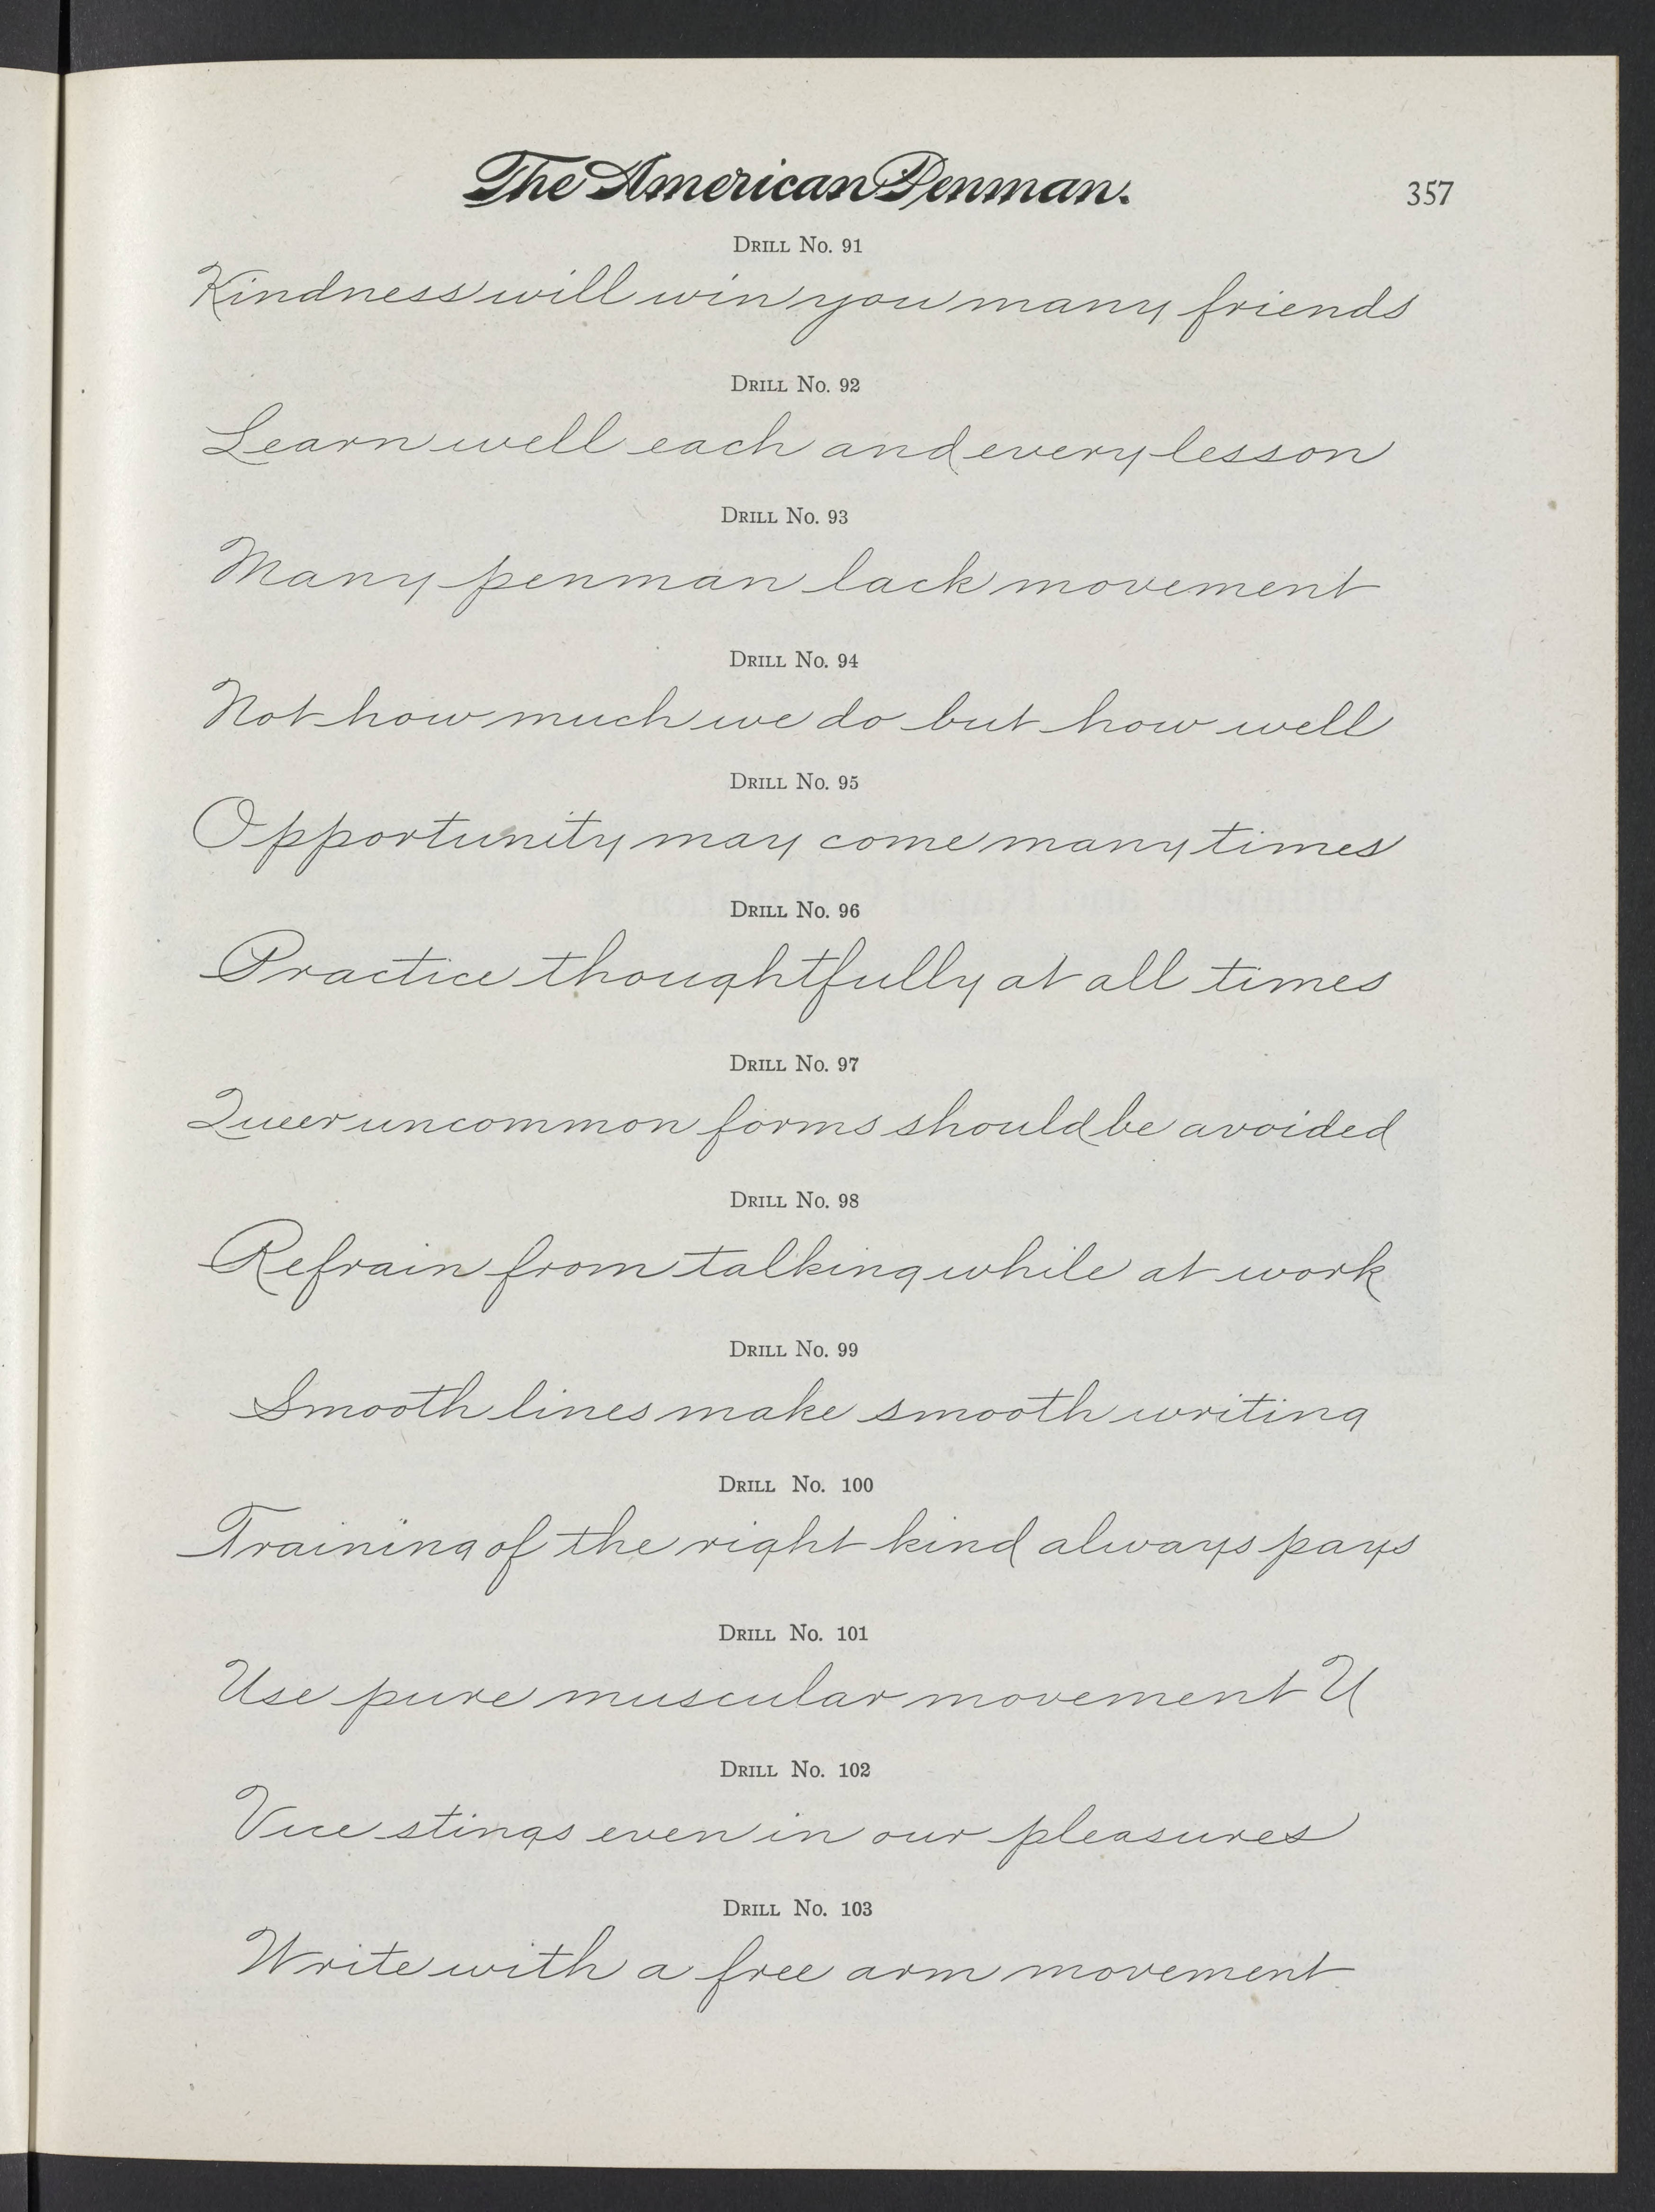 The American Penman.
357
Drill No. 91
Kindness will win you many friends
Drill No. 92
Learn well each and every lesson
Drill No. 93
Many penman lack movement
Drill No. 94
Not how much we do but how well
Drill No. 95
Opportunity may come many times
Drill No. 96
Practice thoughtfully at all times
Drill No. 97
Queer uncommon forms should be avoided
Drill No. 98
Refrain from talking while at work
Drill No. 99
Smooth lines make smooth writing
Drill No. 100
Training of the right kind always pays
Drill No. 101
Use pure muscular movement U
Drill No. 102
Vice stings even in our pleasures
Drill No. 103
Write with a free arm movement